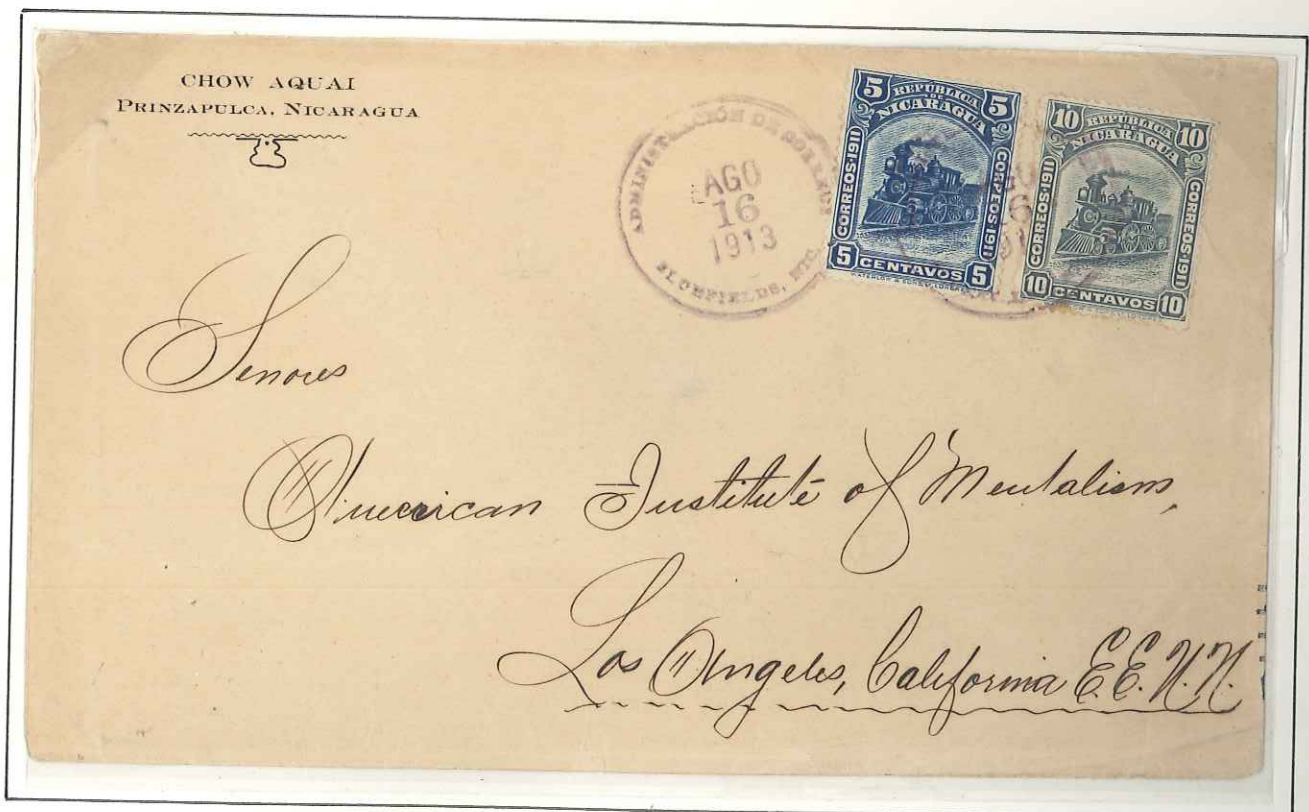 CHOW AQUAI
PRINZAPULCA, NICARAGUA
ADMINISTRACIÓN DE CORREOS
AGO
16
1913
BLUEFIELDS, NIC.
5 REPÚBLICA 5
DE
NICARAGUA
CORREOS-1911
CORREOS-1911
5 CENTAVOS 5
WATERLOW & SONS LD. LONDON
10 REPÚBLICA 10
DE
NICARAGUA
CORREOS-1911
CORREOS-1911
10 CENTAVOS 10
Senores
American Institute of Mentalism,
Los Angeles, California E.E.U.U.